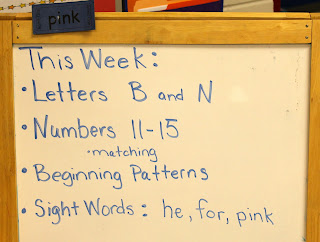 pink
This Week:
• Letters B and N
• Numbers 11-15
• matching
• Beginning Patterns
• Sight Words: he, for, pink